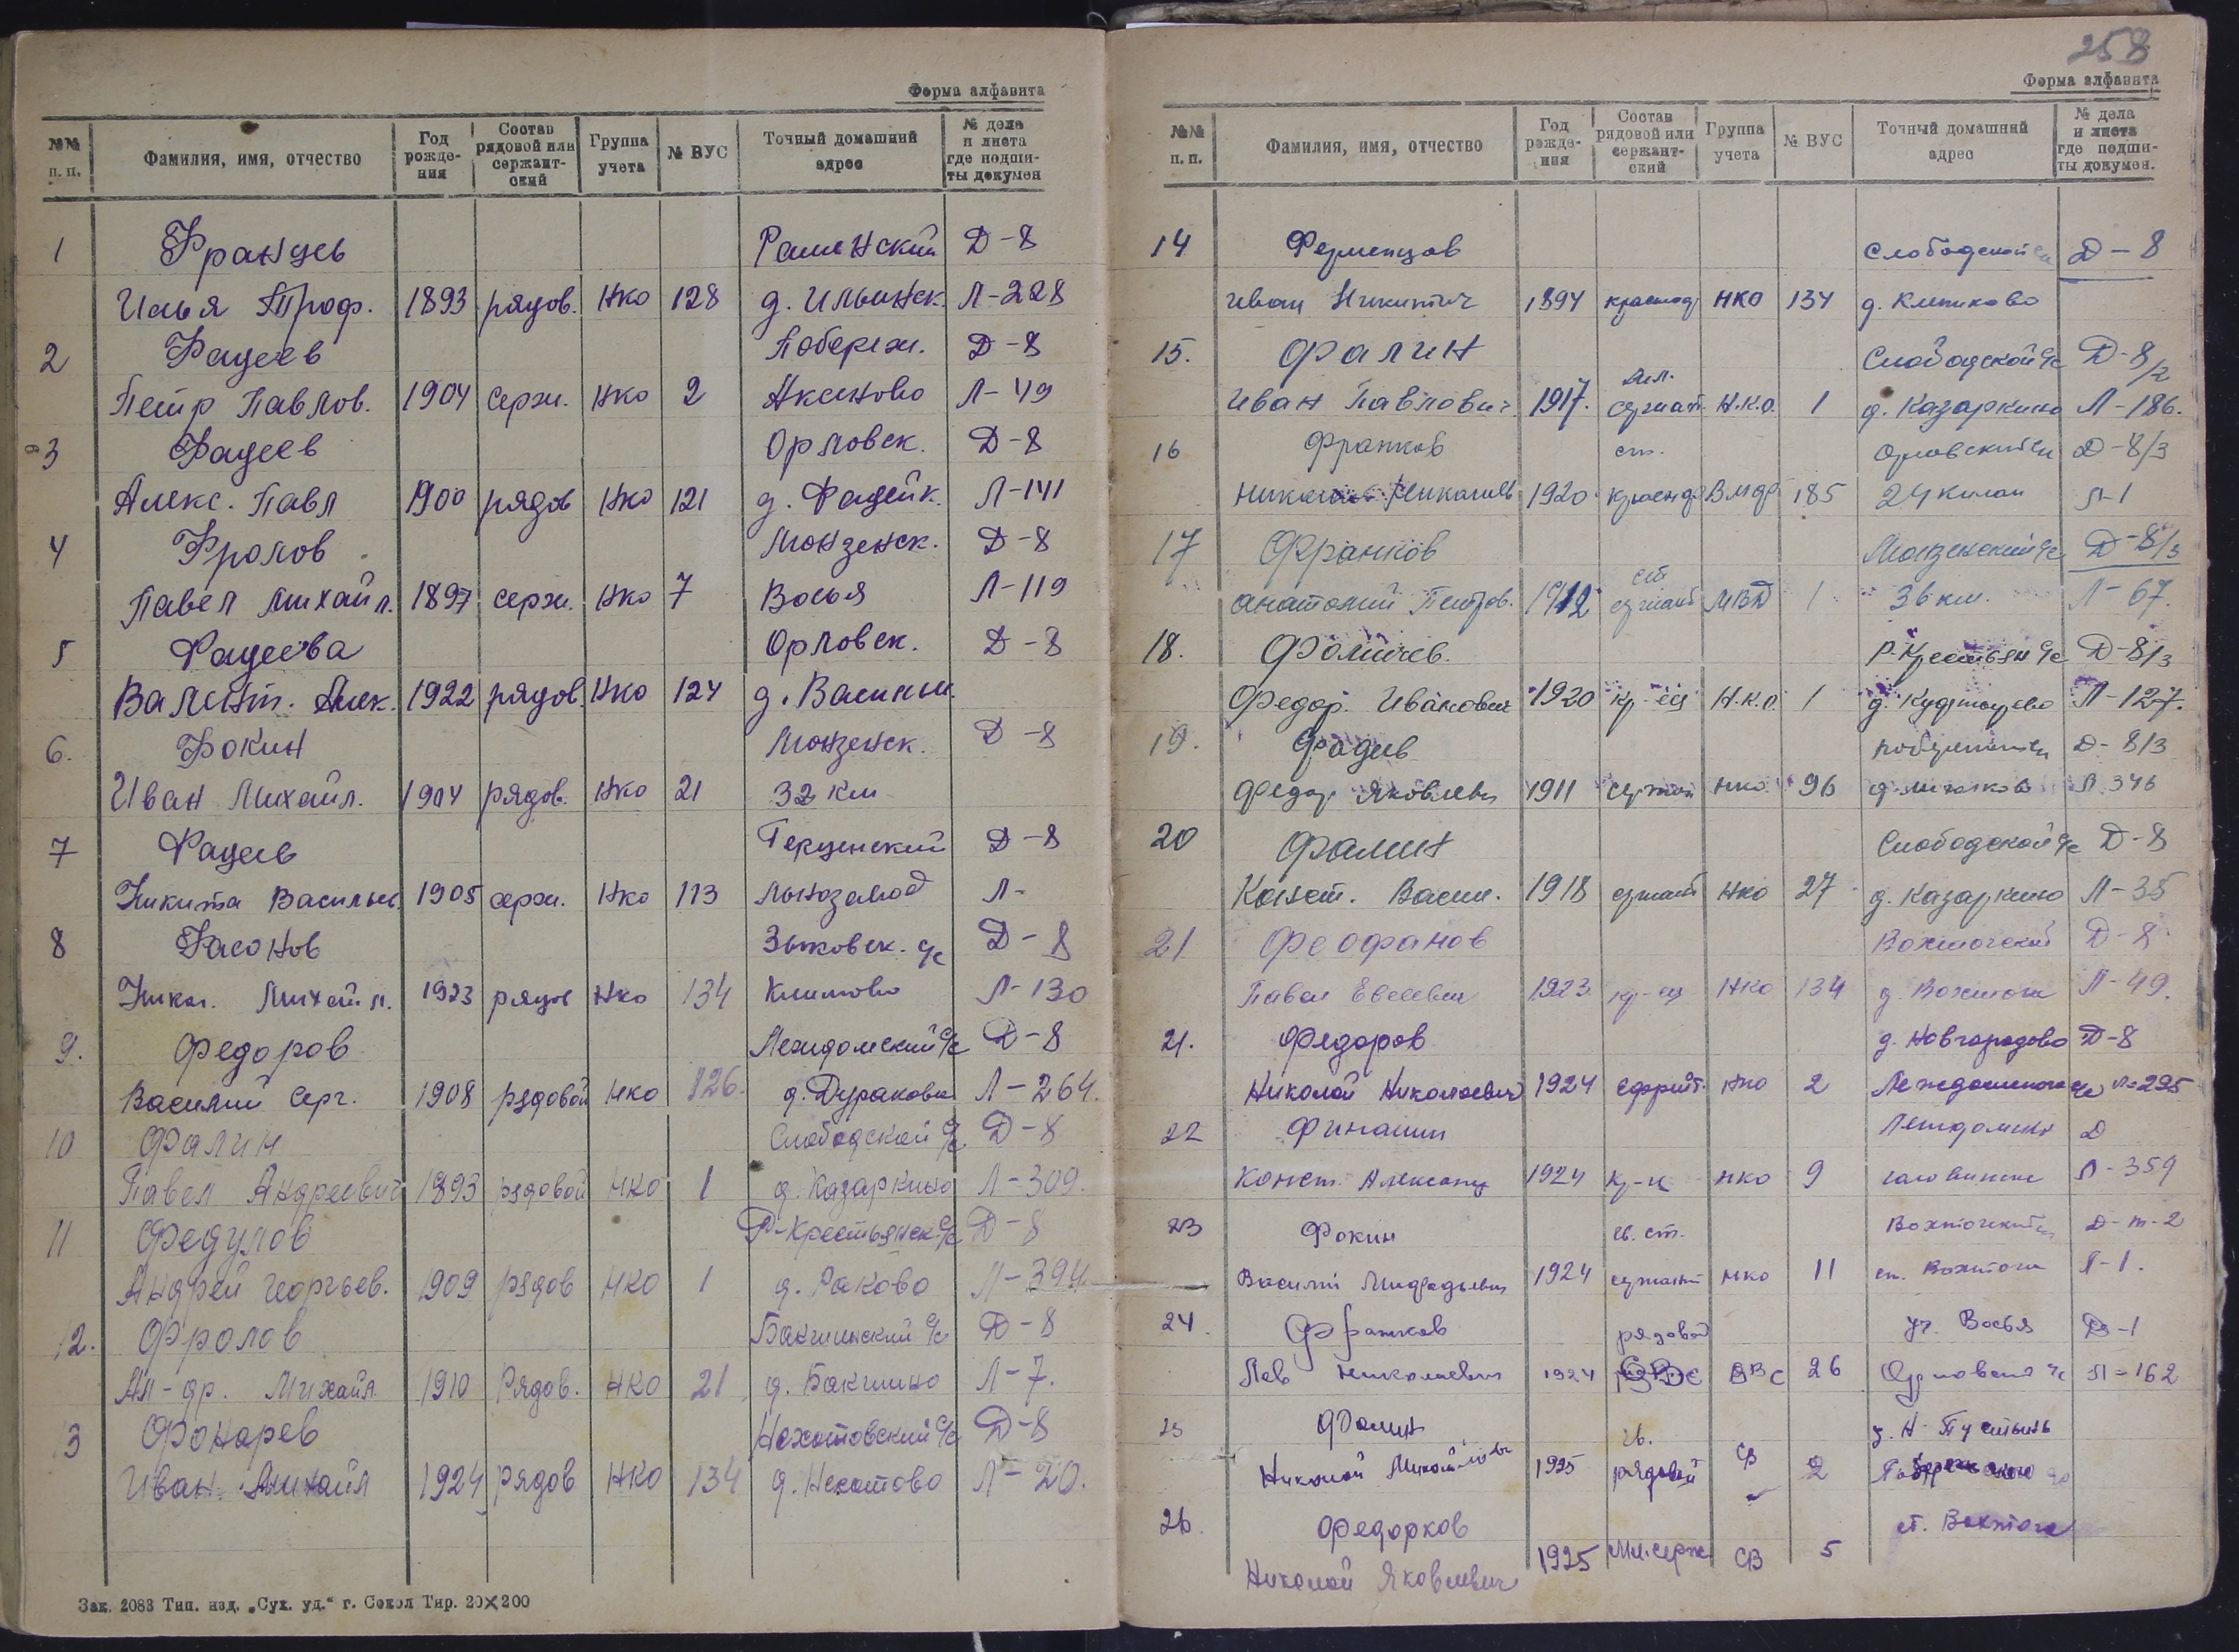 Форма алфавита
№№ п. п. Фамилия, имя, отчество Год рожде-ния Состав рядовой или сержант-ский Группа учета № ВУС Точный домашний адрес № дела и листа где подши-ты докумен
1 Францев Раменский Д-8
Илья Троф. 1893 рядов. НКО 128 д. Ильинск. Л-228
2 Фадеев Побереж. Д-8
Петр Павлов. 1904 серж. НКО 2 Аксеново Л-49
3 Фадеев Орловск. Д-8
Алекс. Павл 1900 рядов НКО 121 д. Фадейк. Л-141
4 Фролов Монзенск. Д-8
Павел Михайл. 1897 серж. НКО 7 Восья Л-119
5 Фадеева Орловск. Д-8
Валент. Алек. 1922 рядов. НКО 124 д.
6. Фокин Монзенск. Д-8
Иван Михайл. 1904 рядов. НКО 21 32 км
7 Фадеев Герценский Д-8
Никита Васильев. 1905 серж. НКО 113 Льнозавод Л-
8 Фасонов Зыковск. с/с Д-8
Никол. Михайл. 1923 рядов НКО 134 Климово Л-130
9. Федоров Леждомский с/с Д-8
Василий Серг. 1908 рядовой НКО 126. д. Дураково Л-264.
10 Фалин Слободской с/с. Д-8
Павел Андреевич 1893 рядовой НКО 1 д. Казаркино Л-309.
11 Федулов Р-Крестьянск. с/с Д-8
Андрей Георгьев. 1909 рядов НКО 1 д. Раково Л-394
12. Фролов Бакшинский с/с Д-8
Ал-др. Михайл. 1910 Рядов. НКО 21 д. Бакшино Л-7.
13 Фонарев Нохотовский с/с Д-8
Иван Михайл 1924 рядов НКО 134 д. Л-20.
Зак. 2083 Тип. изд. „Сух. уд.“ г. Сокол Тир. 20×200
258
Форма алфавита
№№ п. п. Фамилия, имя, отчество Год рожде-ния Состав рядовой или сержант-ский Группа учета № ВУС Точный домашний адрес № дела и листа где подши-ты докумен.
14 Ферменцов Слободской Д-8
Иван Никитич 1894 НКО 134 д. Клепиково
15. Фалин Слободской с/с Д-8/2
Иван Павлович. 1917. мл. сержант. Н.К.О. 1 д. Казаркино Л-186.
16 Франков ст. Орловский Д-8/3
1920 185 24 Л-1
17 Франков Монзенский с/с Д-8/3
Анатолий Петров. 1912 ст сержант МВД 1 36 км. Л-67.
18. Фомичев. Р-Крестьян с/с Д-8/3
Федор. Иванович 1920 кр-ец Н.К.О. 1 д. Л-127.
19. Фадеев Д-8/3
Федор Яковлевич 1911 сержант НКО 96 Л. 346
20 Фалин Слободской с/с Д-8
Конст. Васил. 1918 сержант НКО 27 д. Казаркино Л-35
21 Феофанов Вохтогский Д-8
Павел Евсеевич 1923 кр-ец НКО 134 д. Вохтога Л-49.
21. Федоров д. Новгородово Д-8
Николай Николаевич 1924 Ефрейт. НКО 2 Леждомского с/с Л=295
22 Финашин Леждомский Д
Конст. Александ 1924 кр-ц НКО 9 Л-359
23 Фокин гв. ст. Вохтогский Д-т-2
Василий 1924 сержант НКО 11 ст. Вохтога Л-1.
24. Франков рядовой уч. Восья Д-1
Лев Николаевич 1924 ВВС 26 Орловский с/с Л=162
25 Фалин гв. д. Н-Пустынь
Николай Михайлович 1925 рядовой СВ 2
26. Федорков ст. Вохтога
Николай Яковлевич 1925 Мл. серж СВ 5